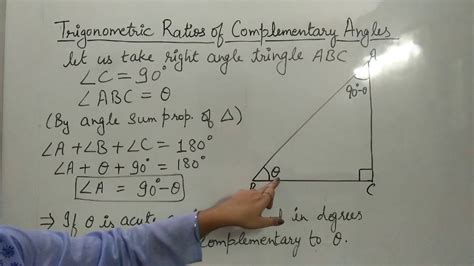 Trigonometric Ratios of Complementary Angles
let us take right angle tringle ABC
∠C = 90°
∠ABC = θ
(By angle sum prop. of △)
∠A + ∠B + ∠C = 180°
∠A + θ + 90° = 180°
∠A = 90° - θ
⇒ If θ is acute in degrees
complementary to θ.
A
90°-θ
θ
B
C